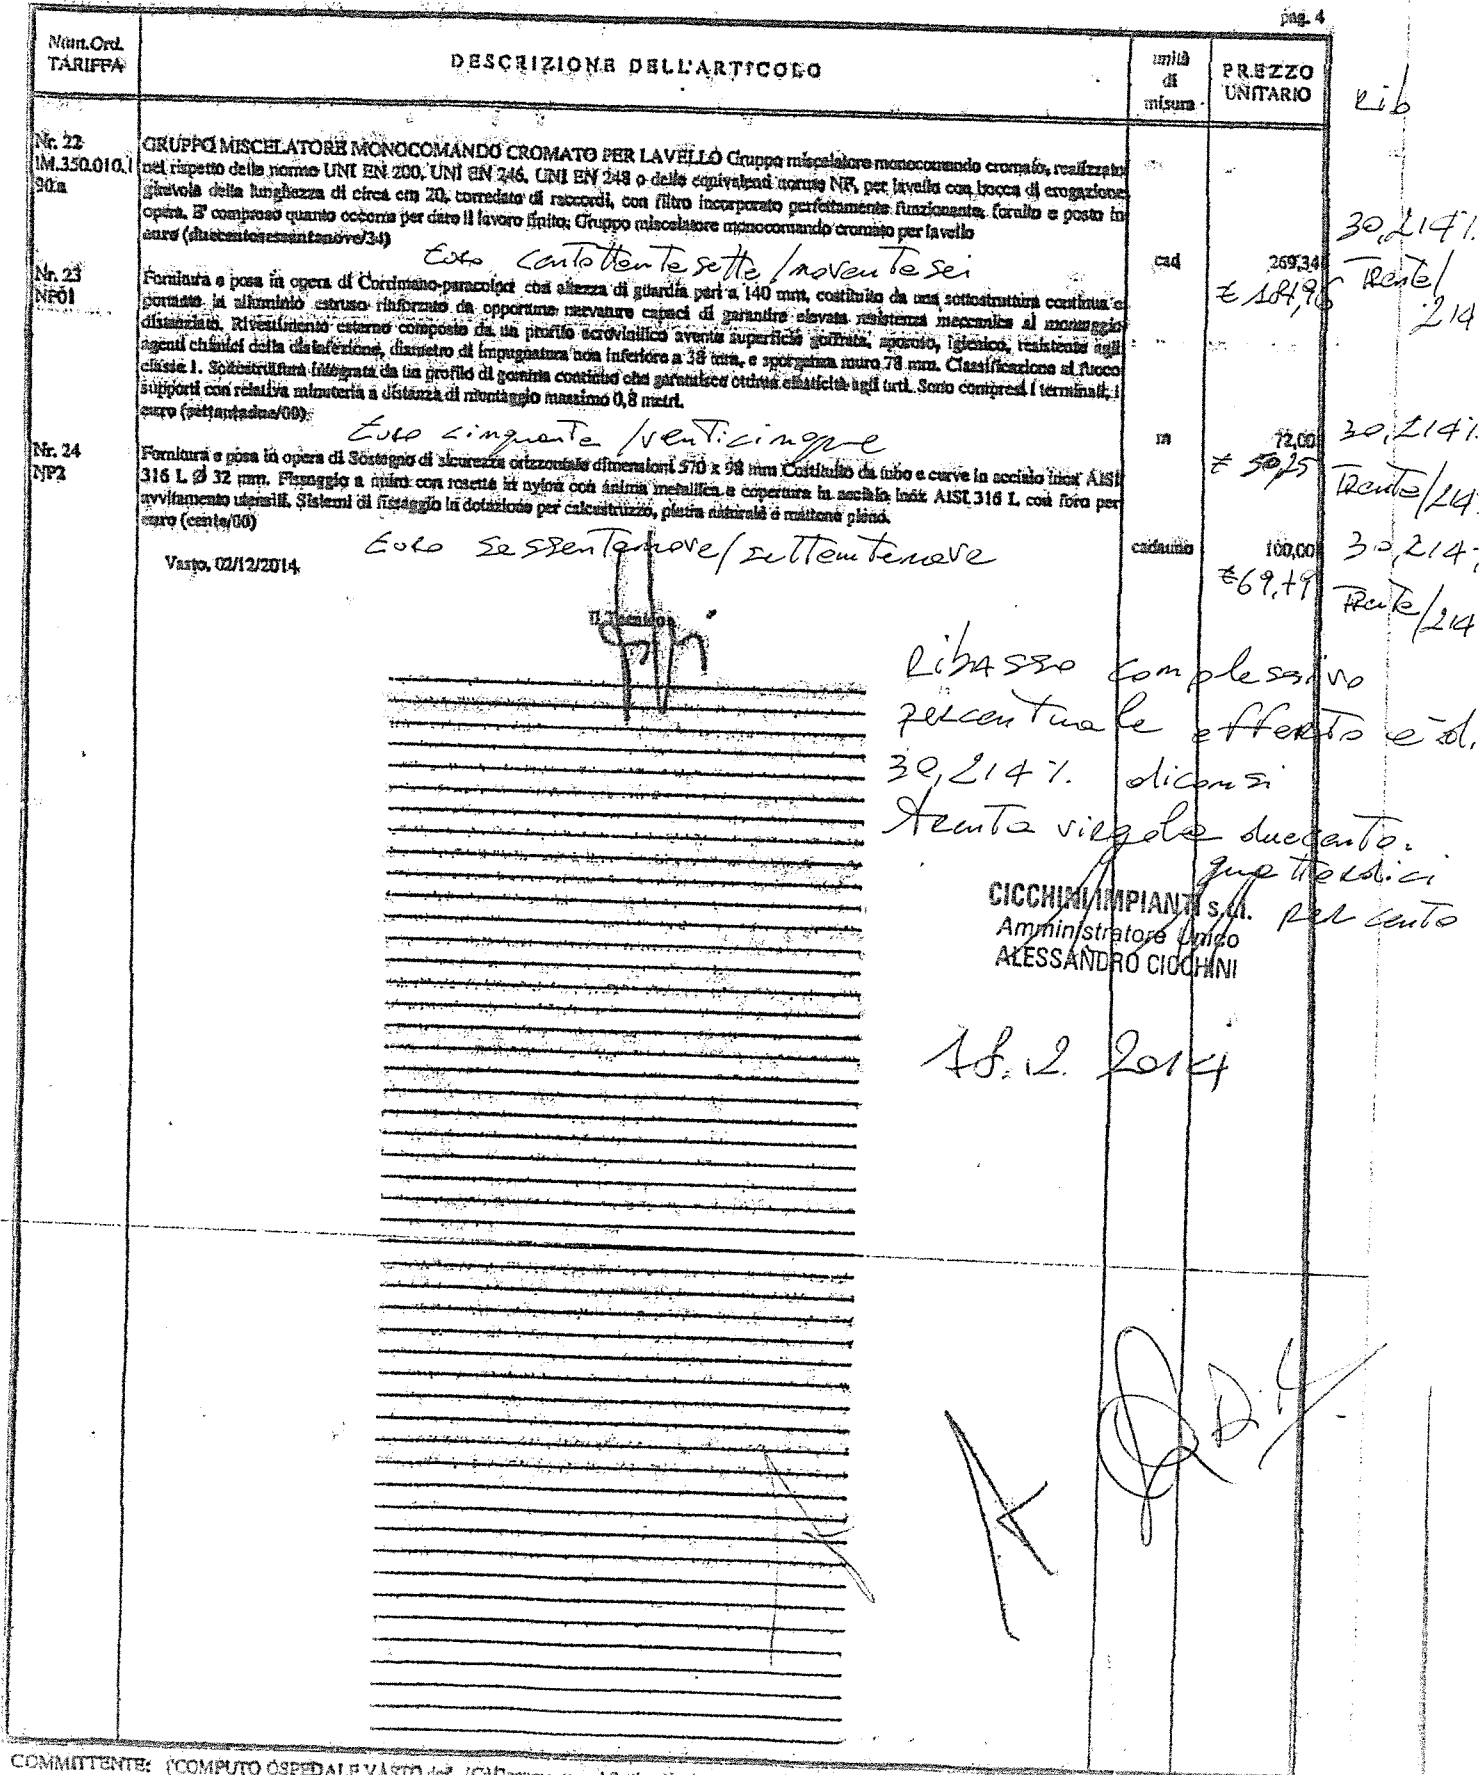 pag. 4
Num.Ord.
TARIFFA
DESCRIZIONE DELL'ARTICOLO
unità
di
misura
PREZZO
UNITARIO
Rib
Nr. 22
IM.350.010.1
90.a
GRUPPO MISCELATORE MONOCOMANDO CROMATO PER LAVELLO Gruppo miscelatore monocomando cromato, realizzato
nel rispetto delle norme UNI EN 200, UNI EN 246, UNI EN 248 o delle equivalenti norme NF, per lavello con bocca di erogazione
girevole della lunghezza di circa cm 20, corredato di raccordi, con filtro incorporato perfettamente funzionante, fornito e posto in
opera. E' compreso quanto occorre per dare il lavoro finito; Gruppo miscelatore monocomando cromato per lavello
euro (duecentosessantanove/34)
cad
269,34
30,214%
Euro centottantasette/novantasei
Trenta/
214
Nr. 23
NP01
Fornitura e posa in opera di Corrimano-paracolpi con altezza di guardia pari a 140 mm, costituito da una sottostruttura continua e
portante in alluminio estruso rinforzato da opportune nervature capaci di garantire elevata resistenza meccanica al montaggio
distanziato. Rivestimento esterno composto da un profilo acrovinilico avente superficie goffrata, aporoso, igienico, resistente agli
agenti chimici della disinfezione, diametro di impugnatura non inferiore a 38 mm, e sporgenza muro 78 mm. Classificazione al fuoco
classe 1. Sottostruttura integrata da un profilo di gomma continuo che garantisce ottima elasticità agli urti. Sono compresi i terminali, i
supporti con relativa minuteria a distanza di montaggio massimo 0,8 metri.
euro (settantadue/00)
m
72,00
30,214%
Euro cinquanta/venticinque
€ 50,25
Trenta/214
Nr. 24
NP2
Fornitura e posa in opera di Sostegno di sicurezza orizzontale dimensioni 570 x 98 mm Costituito da tubo e curve in acciaio inox AISI
316 L Ø 32 mm. Fissaggio a muro con rosette in nylon con anima metallica e copertura in acciaio inox AISI 316 L con foro per
avvitamento utensili. Sistemi di fissaggio in dotazione per calcestruzzo, pietra naturale e mattone pieno.
euro (cento/00)
cadauno
100,00
30,214%
Euro sessantanove/settantanove
€ 69,79
Trenta/214
Vasto, 02/12/2014
Il Tecnico
Ribasso complessivo
percentuale offerto è di
30,214% diconsi
Trenta virgola duecento.
quattordici
per cento
CICCHINI IMPIANTI s.r.l.
Amministratore Unico
ALESSANDRO CICCHINI
18.12.2014
COMMITTENTE: COMPUTO OSPEDALE VASTO